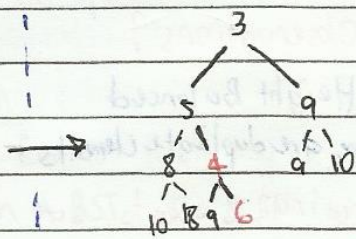 3
5 9
8 4 9 10
10 18 9 6